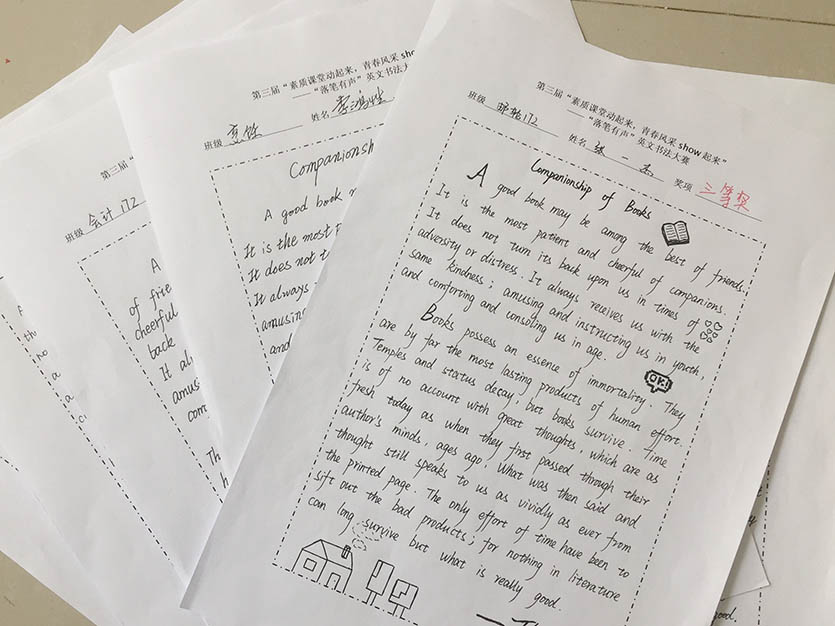 第三届"素质课堂动起来，青春风采show起来"
——"落笔有声"英文书法大赛
班级 姓名 张一 奖项 三等奖
Companionship of Books
A good book may be among the best of friends.
It is the most patient and cheerful of companions.
It does not turn its back upon us in times of
adversity or distress. It always receives us with the
same kindness; amusing and instructing us in youth,
and comforting and consoling us in age.
Books possess an essence of immortality. They
are by far the most lasting products of human effort.
Temples and status decay, but books survive. Time
is of no account with great thoughts, which are as
fresh today as when they first passed through their
author's minds, ages ago. What was then said and
thought still speaks to us as vividly as ever from
the printed page. The only effort of time have been to
sift out the bad products; for nothing in literature
can long survive but what is really good.
OK!
第三届"素质课堂动起来，青春风采sho
——"落笔有声"英文书法大赛
班级 姓名
Companionsh
A good book m
It is the most p
It does not t
It always
amusing
and
第三届"
班级 会计172
A
of frie
cheerful
back
It al
amus
com
Th
good.